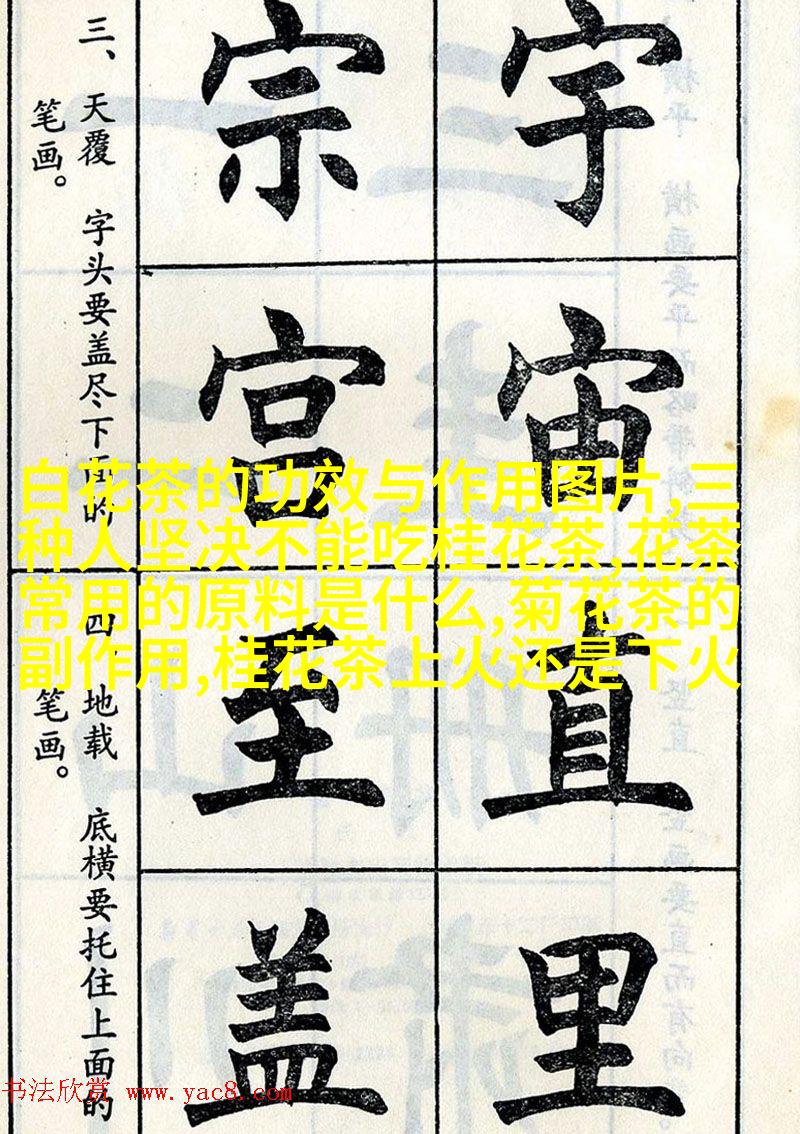 宇宙
宗宫
三、天覆 字头要盖尽下面的
笔画。
直里
至盖
四、地载 底横要托住上面的
笔画。
白花茶的功效与作用图片,三
种人坚决不能吃桂花茶,花茶
常用的原料是什么,菊花茶的
副作用,桂花茶上火还是下火
书法欣赏 www.yac8.com